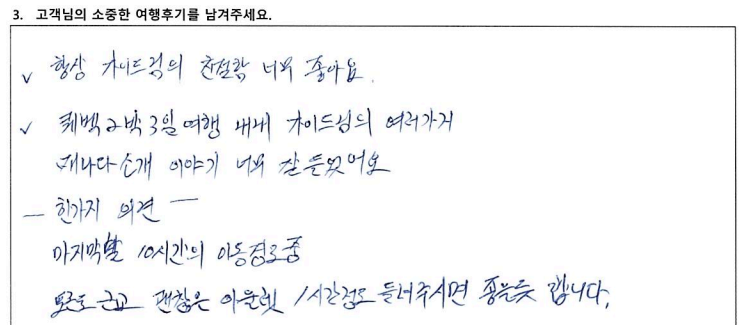 3. 고객님의 소중한 여행후기를 남겨주세요.
✓ 항상 가이드님의 친절함 너무 좋아요.
✓ 퀘벡 2박 3일 여행 내내 가이드님의 여러가지
캐나다 소개 이야기 너무 잘 들었어요
— 한가지 의견 —
마지막날 10시간의 이동경로중
토론토 근교 괜찮은 아울렛 1시간정도 들러주시면 좋을듯 합니다.